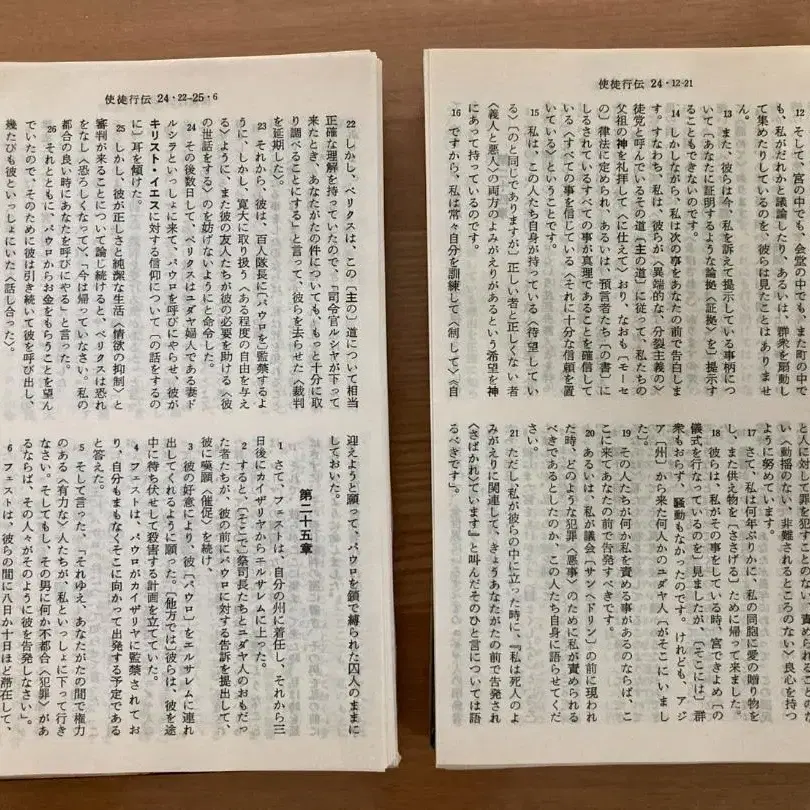 使徒行伝 24・12-21
12 そして、宮の中でも、会堂の中でも、また町の中で
も、私がだれかと議論したり、あるいは、群衆を扇動し
て集めたりしているのを、彼らは見たことはありませ
ん。
13 また、彼らは今、私を訴えて提示している事柄につ
いて〔あなたに証明するような論拠〈証拠〉を〕提示す
ることもできないのです。
14 しかしながら、私は次の事をあなたの前で告白しま
す。すなわち、私は、彼らが〈異端的な、分裂主義の〉
徒党と呼んでいるその道〔主の道〕に従って、私たちの
父祖の神を礼拝して〈に仕えて〉おり、なおも〔モーセ
の〕律法に定められ、あるいは、預言者たち〔の書〕に
しるされているすべての事が真理であることを確信して
いる〈すべての事を信じている〈それに十分な信頼を置
いている〉ということです。
15 私は、この人たち自身が持っている〈待望してい
る〉〔のと同じでありますが〕正しい者と正しくない者
〈義人と悪人〉の両方のよみがえりがあるという希望を神
にあって持っているのです。
16 ですから、私は常々自分を訓練して〈制して〉〈自
と人に対して罪を犯すことのない、責められることのな
い〈動揺のない、非難されるところのない〉良心を持つ
ように努めています。
17 さて、私は何年ぶりかに、私の同胞に愛の贈り物を
し、また供え物を〔ささげる〕ために帰って来ました。
18 彼らは、私がその事をしている時、宮できよめ〔の
儀式を行なっているのを〕見ましたが、〔そこには〕群
衆もおらず、騒動もなかったのです。けれども、アジ
ア〔州〕から来た何人かのユダヤ人〔がそこにいまし
た〕。
19 その人たちが何か私を責める事があるのならば、こ
こに来てあなたの前で告発すべきです。
20 あるいは、私が議会〔サンヘドリン〕の前に現われ
た時、どのような犯罪〈悪事〉のために私が責められる
べきであるとしたのか、この人たち自身に語らせてくだ
さい。
21 ただし、私が彼らの中に立った時に、『私は死人のよ
みがえりに関連して、きょうあなたがたの前で告発され
〈さばかれ〉ています』と叫んだそのひと言については語
るべきです」。
使徒行伝 24・22-25・6
22 しかし、ペリクスは、この〔主の〕道について相当
正確な理解を持っていたので、「司令官ルシヤが下って
来たとき、あなたがたの件についても、もっと十分に取
り調べることにする」と言って、彼らを去らせた〈裁判
を延期した〉。
23 それから、彼は、百人隊長に〔パウロを〕監禁するよ
うに、しかし、寛大に取り扱う〈ある程度の自由を与え
る〉ように、また彼の友人たちが彼の必要を助ける〈彼
の世話をする〉のを妨げないようにと命令した。
24 その後数日して、ペリクスはユダヤ婦人である妻ド
ルシラといっしょに来て、パウロを呼びにやらせ、彼が
キリスト・イエスに対する信仰について〔の話をするの
に〕耳を傾けた。
25 しかし、彼が正しさと純潔な生活〈情欲の抑制〉と
審判が来ることについて論じ続けると、ペリクスは恐れ
をなし〈恐ろしくなって〉、「今は帰っていなさい。私の
都合の良い時にあなたを呼びにやる」と言った。
26 それとともに、パウロからお金をもらうことを望ん
でいたので、そのために彼は引き続いて彼を呼び出し、
幾たびも彼といっしょにいた〈話し合った〉。
迎えようと願って、パウロを鎖で縛られた囚人のままに
しておいた。
第二十五章
1 さて、フェストは、自分の州に着任し、それから三
日後にカイザリヤからエルサレムに上った。
2 すると、〔そこで〕祭司長たちとユダヤ人のおもだっ
た者たちが、彼の前にパウロに対する告訴を提出して、
彼に嘆願〈催促〉を続け、
3 彼の好意により、彼〔パウロ〕をエルサレムに連れ
出してくれるように願った。〔他方では〕彼らは、彼を途
中に待ち伏せして殺害する計画を立てていた。
4 フェストは、パウロがカイザリヤに監禁されてお
り、自分もまもなくそこに向かって出発する予定である
と答えた。
5 そして言った。「それゆえ、あなたがたの間で権力
のある〈有力な〉人たちが、私といっしょに下って行き
なさい。そしてもし、その男に何か不都合〈犯罪〉があ
るならば、その人々がそのように彼を告発しなさい」。
6 フェストは、彼らの間に八日か十日ほど滞在して、